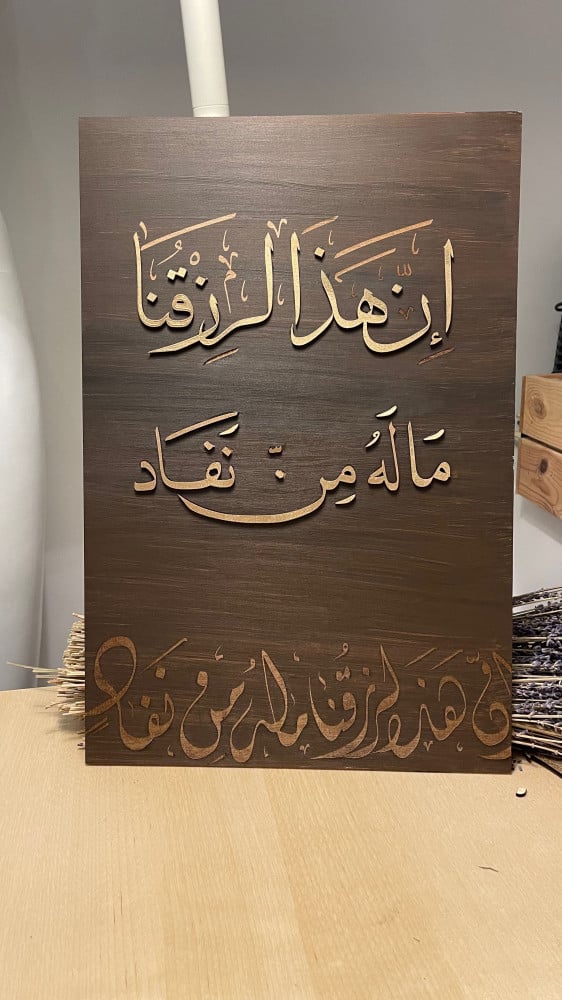 إِنَّ هَذَا لَرِزْقُنَا
مَا لَهُ مِنْ نَفَادٍ
إن هَذَا لَرزقُنا مالهُ مِن نفادِ